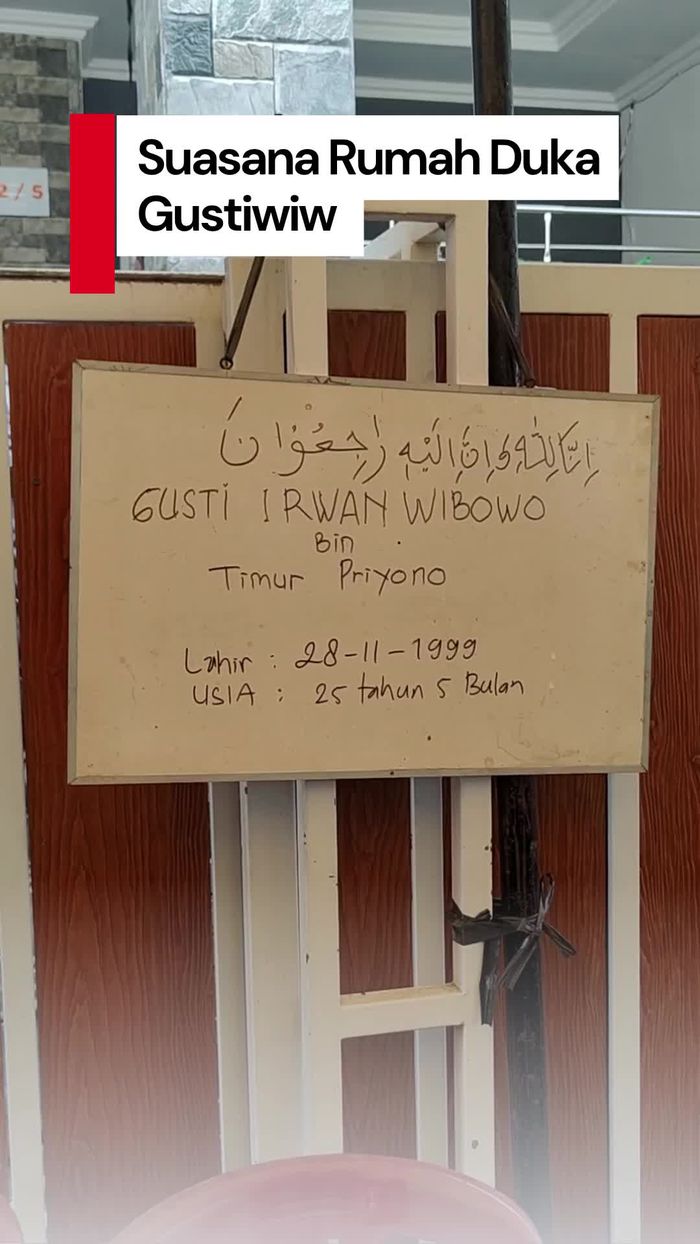 Suasana Rumah Duka
Gustiwiw
2/5
اِنَّا لِلّٰهِ وَاِنَّا اِلَيْهِ رَاجِعُوْانَ
GUSTI IRWAN WIBOWO
Bin
Timur Priyono
Lahir : 28-11-1999
USIA : 25 tahun 5 Bulan